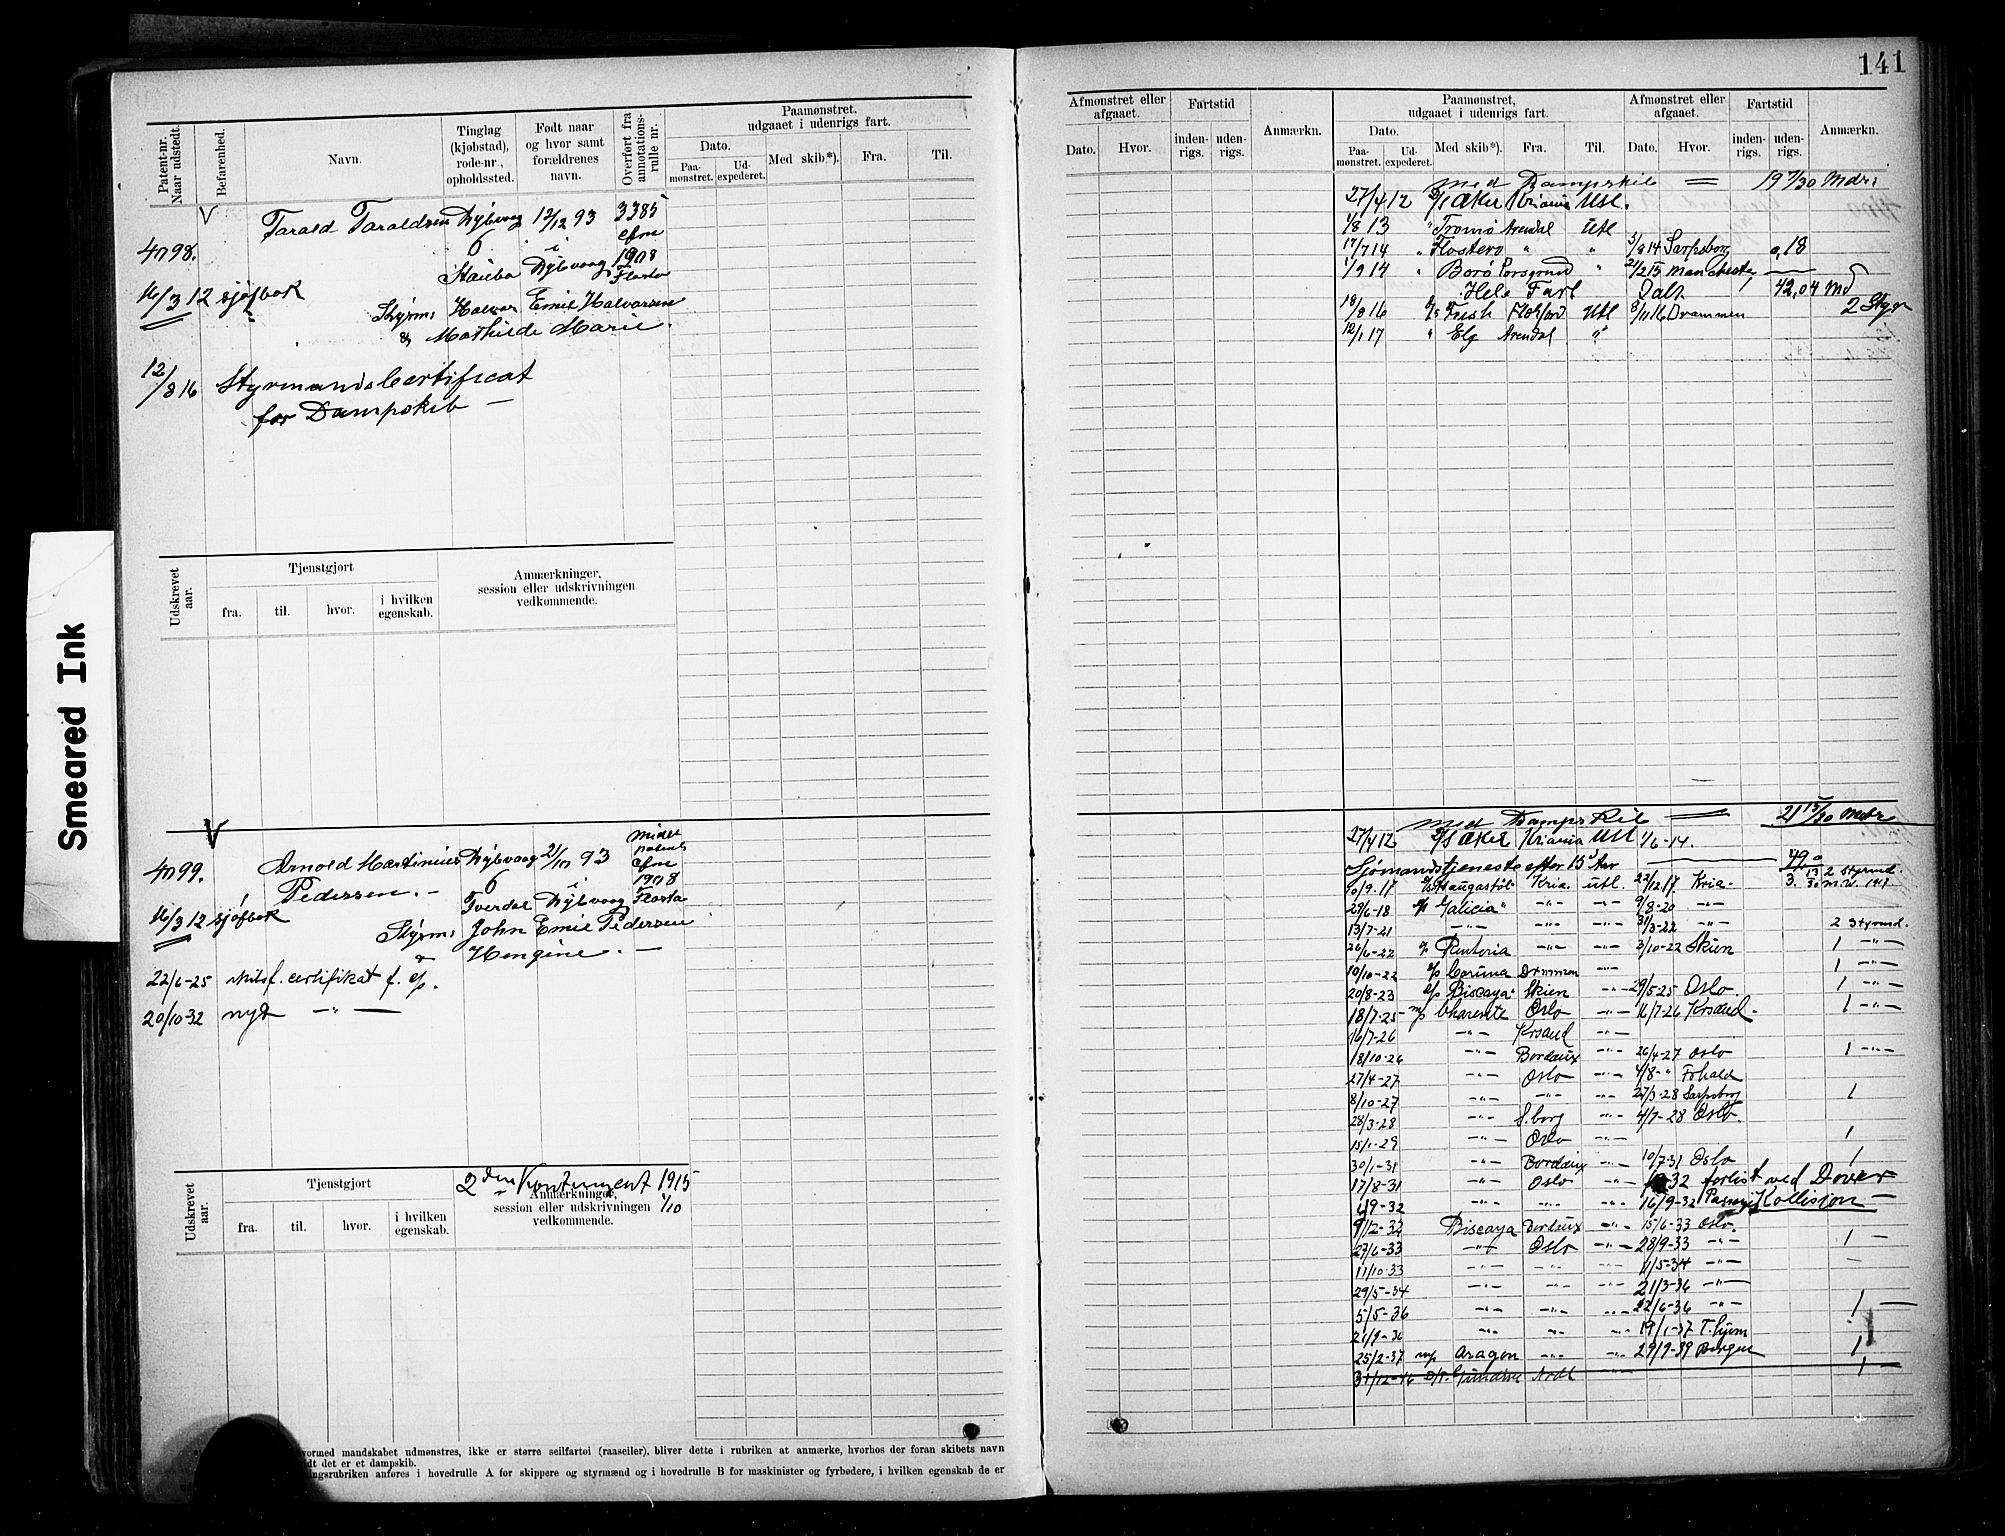 141
Smeared Ink
Patent-nr. Naar udstedt.
Befarenhed.
Navn.
Tinglag (kjøbstad), rode-nr., opholdssted.
Født naar og hvor samt forældrenes navn.
Overført fra annotations-rulle nr.
Paamønstret, udgaaet i udenrigs fart.
Dato.
Paa-mønstret. Ud-expederet.
Med skib*).
Fra.
Til.
V
Tarald Taraldsen Dybvaag 12/12 93 3385
4098. 6 i 1908
Staubø Dybvaag Flosta
16/3 12 sjøfbok
Styrm: Halvor Emil Halvorsen
& Mathilde Marie.
12/8 16 Styrmands Certificat
for Dampskib —
Udskrevet aar.
Tjenstgjort
fra. til. hvor. i hvilken egenskab.
Anmærkninger, session eller udskrivningen vedkommende.
V
4099. Arnold Martinius Dybvaag 21/10 93
Pedersen. — 6 i 1908
16/3 12 sjøfbok Dybvaag Flosta
Styrm: John Emil Pedersen
22/6-25 certifikat f.
20/10-32 nyt —"—
2den Kontingent 1915
1/10
Udskrevet aar.
Tjenstgjort
fra. til. hvor. i hvilken egenskab.
Anmærkninger, session eller udskrivningen vedkommende.
hvormed mandskabet udmønstres, ikke er større seilfartøi (raaseiler), bliver dette i rubriken at anmærke, hvorhos der foran skibets navn
dt det er et dampskib.
ningsrubriken anføres i hovedrulle A for skippere og styrmænd og i hovedrulle B for maskinister og fyrbødere, i hvilken egenskab de er
Afmønstret eller afgaaet.
Dato. Hvor.
Fartstid
inden-rigs. uden-rigs.
Anmærkn.
Paamønstret, udgaaet i udenrigs fart.
Dato.
Paa-mønstret. Ud-expederet.
Med skib*). Fra. Til.
Afmønstret eller afgaaet.
Dato. Hvor.
Fartstid
inden-rigs. uden-rigs.
Anmærkn.
med Dampskib = 19 7/30 Mdr:
27/4 12 D/S Aker Kriania Utl.
1/8 13 " Tromø Arendal Utl
17/7 14 " Flosterø " " 5/8 14 Sarpsborg 0,18
1/9 14 " Borø Porsgrund " 21/2 15 Manchester
Hele Fart Ialt 42,04 Md
18/8 16 Utl 8/11 16 Drammen 2 Styr
12/1 17 " Elg Arendal "
med Dampskib = 21 15/30 Mdr
27/4 12 D/S Aker Kriania Utl 1/6-14.
Sjømandstjeneste efter 15 Aar 49
10/9.17 Haugastøl" Kria. utl. 22/12.17 Kria. 3. 2 Styrmd.
29/6-18 Galicia" —"— —"— 9/8-20 —"—
13/7-21 —"— —"— —"— 31/3-22 —"— 2 Styrmd.
26/6-22 —"— —"— 3/10-22 Skien 1 —"—
10/10-22 Drammen —"— 1 —"—
20/8-23 Biscaya" Skien —"— 29/5-25 Oslo. 1 —"—
18/7-25 m/s Charente Oslo —"— 16/7-26 Krsand. 1 —"—
16/7-26 —"— Krsand —"—
18/10-26 —"— Bordaux —"— 26/4-27 Oslo 1 —"—
27/4-27 —"— Oslo —"— 4/8-"
8/10-27 —"— —"— —"— 27/3-28 Sarpsborg 1
28/3-28 —"— S.borg —"— 4/7-28 Oslo.
—"— Oslo —"— 1
30/1-31 —"— Bordaux —"— 10/7-31 Oslo 1
17/8-31 —"— Oslo —"— 32 forlist ved Dover
—"— —"— 16/9-32 Kollision —
9/12-32 Biscaya Bordaux —"— 15/6-33 Oslo.
27/6-33 —"— Oslo —"— 28/9-33 —"— 1 —
11/10-33 —"— —"— —"— —"—
29/5-34 —"— —"— —"— 21/3-36 —"—
5/5-36 —"— —"— —"— 22/6-36 —"— 1 —
—"— —"— —"— 19/1-37 T.hjem
25/2-37 m/s Aragon —"— —"— 29/9-39 Bergen 1